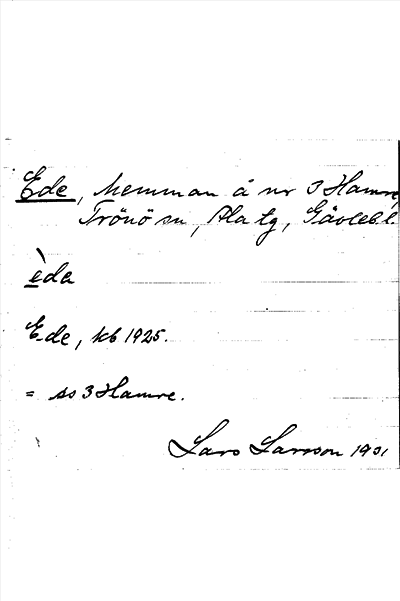 Ede, hemman å nr 3 Hamre,
Trönö sn, Ala tg, Gävlebl.
èda
Ede, kb 1925.
= ss 3 Hamre.
Lars Larsson